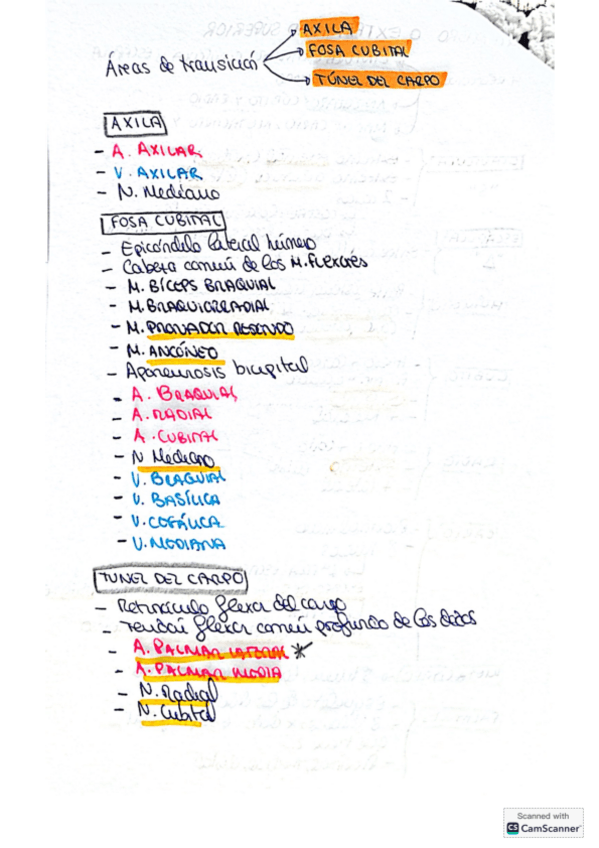 Áreas de transición
AXILA
FOSA CUBITAL
TÚNEL DEL CARPO
AXILA
- A. AXILAR
- V. AXILAR
- N. Mediano
FOSA CUBITAL
- Epicóndilo lateral húmero
- Cabeza común de los M. FLEXORES
- M. BÍCEPS BRAQUIAL
- M. BRAQUIORRADIAL
- M. PRONADOR REDONDO
- M. ANCÓNEO
- Aponeurosis bicipital
- A. BRAQUIAL
- A. RADIAL
- A. CUBITAL
- N Mediano
- V. BRAQUIAL
- V. BASÍLICA
- V. CEFÁLICA
- V. MEDIANA
TUNEL DEL CARPO
- Retináculo flexor del carpo
- Tendón flexor común profundo de los dedos
- A. PALMAR LATERAL *
- A. PALMAR MEDIA
- N. Radial
- N. Cubital
Scanned with
CS CamScanner